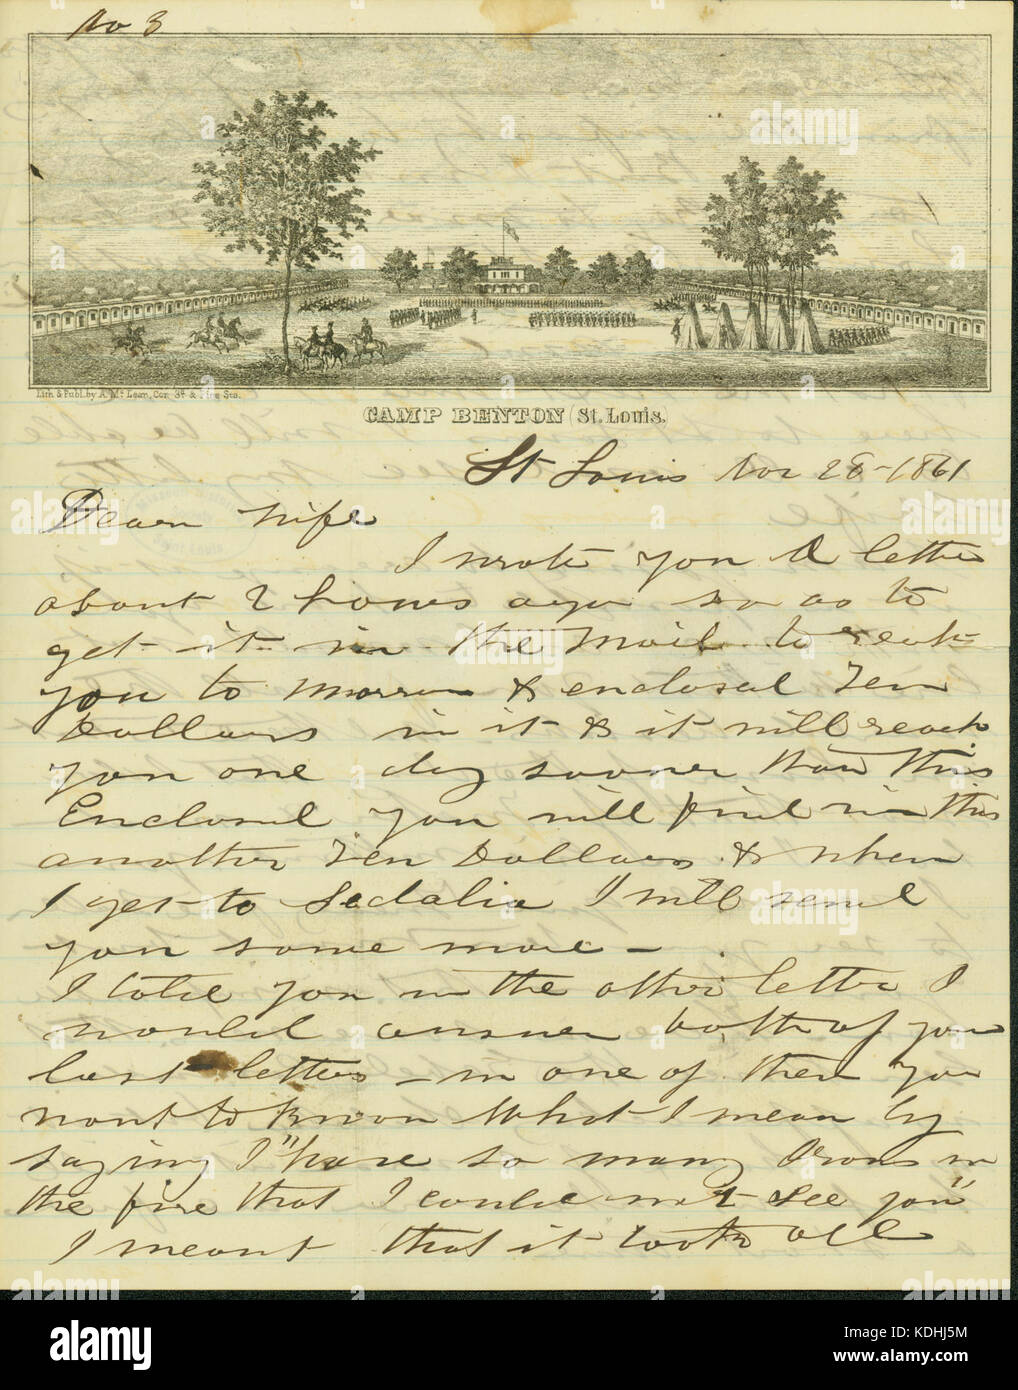 No 3
Lith & Publ. by A. Mc Lean, Cor. 3d & Pine Sts.
CAMP BENTON (St. Louis.
St Louis Nov 28-1861
Dear Wife
I wrote you A letter
about 2 hours ago so as to
get it in the Mail to reach
you to morrow & enclosed Ten
Dollars in it & it will reach
you one day sooner than this
Enclosed you will find in this
another Ten Dollars & when
I get to Sedalia I will send
you some more —
I told you in the other letter I
would answer both of you
last letters — in one of them you
want to know What I mean by
saying I "have so many Irons in
the fire that I could not see you"
I meant that it took all
alamy
Image ID: KDHJ5M
www.alamy.com